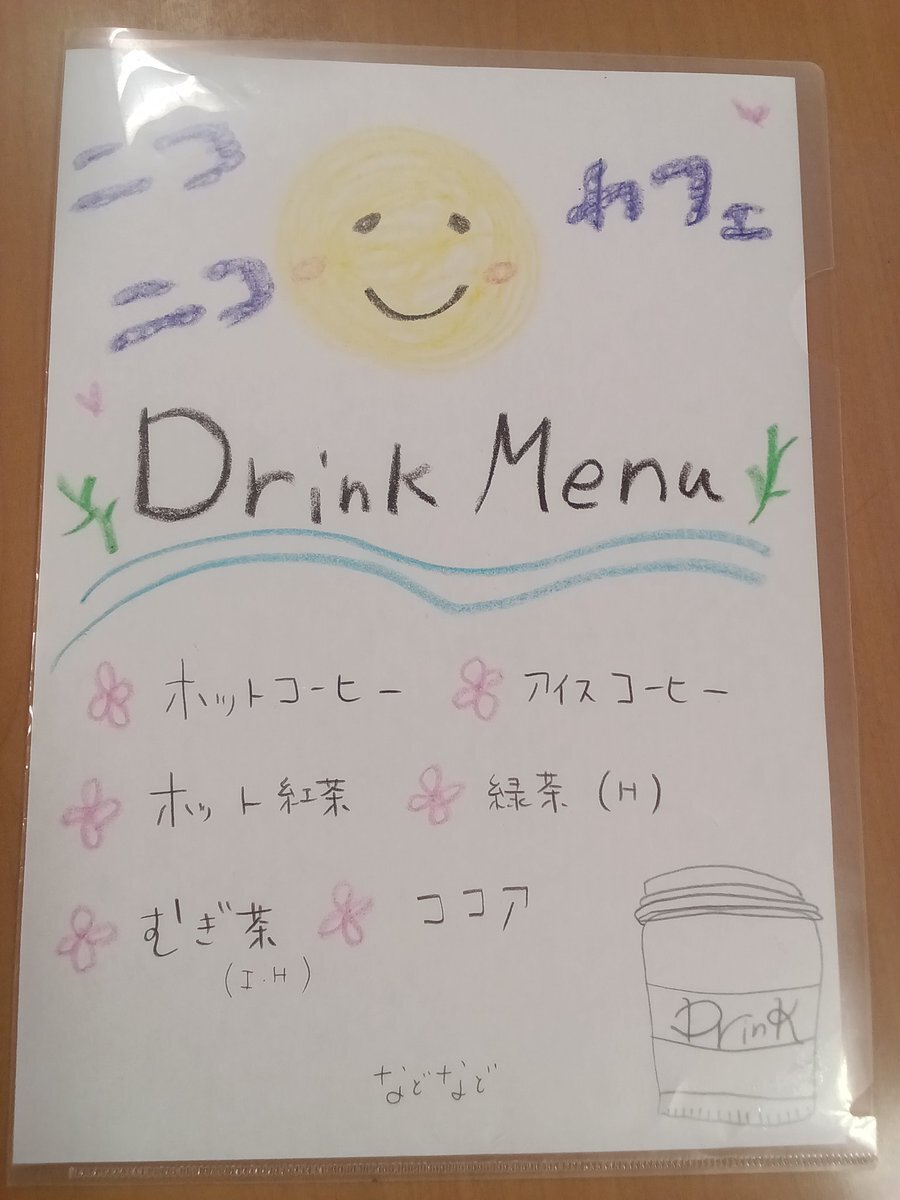 ニコ
ニコ
カフェ
Drink Menu
ホットコーヒー
アイスコーヒー
ホット紅茶
緑茶 (H)
むぎ茶
(I.H)
ココア
などなど
Drink